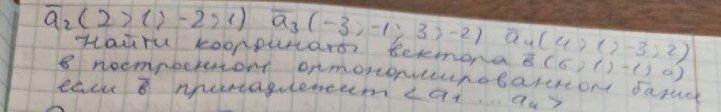 a̅₂(2; 1; -2; 1) a̅₃(-3; -1; 3; -2) a̅₄(4; 1; -3; 2)
Найти координаты вектора b̅(6; 1; -1; 0)
в построенном ортонормированном базисе
если b̅ принадлежит <a₁ ... a₄>